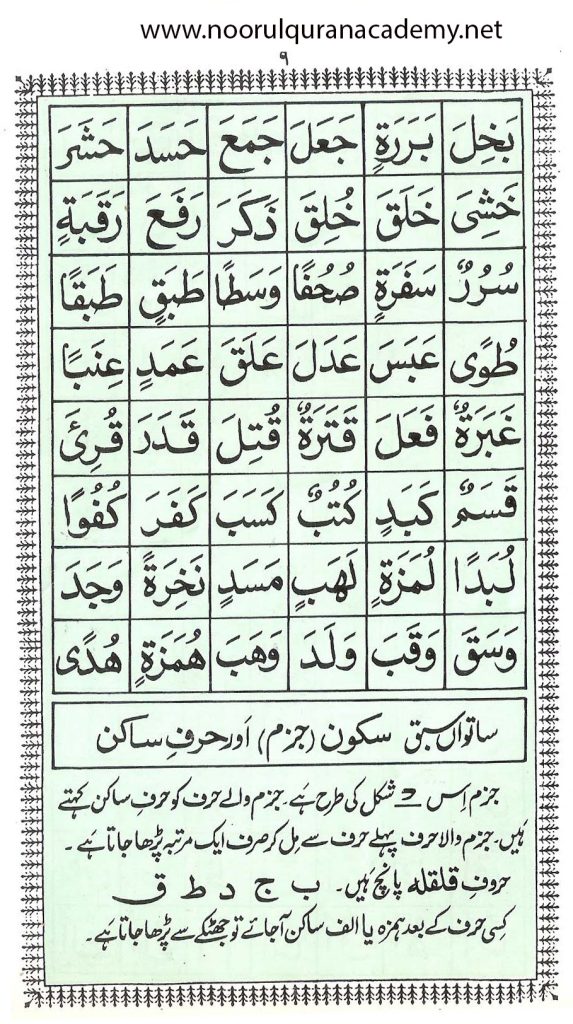 www.noorulquranacademy.net
۹
بَخِلَ بَرَرَةٍ جَعَلَ جَمَعَ حَسَدَ حَشَرَ
خَشِیَ خَلَقَ خُلِقَ ذَكَرَ رَفَعَ رَقَبَةٍ
سُرُرٌ سَفَرَةٍ صُحُفًا وَسَطًا طَبَقٍ طَبَقًا
طُوًی عَبَسَ عَدَلَ عَلَقَ عَمَدٍ عِنَبًا
غَبَرَةٌ فَعَلَ قَتَرَةٌ قُتِلَ قَدَرَ قُرِئَ
قَسَمٌ كَبَدٍ كُتُبٌ كَسَبَ كَفَرَ كُفُوًا
لُبَدًا لُمَزَةٍ لَهَبٍ مَسَدٍ نَخِرَةً وَجَدَ
وَسَقَ وَقَبَ وَلَدَ وَهَبَ هُمَزَةٍ هُدًی
ساتواں سبق سکون (جزم) اَور حرفِ ساکن
جزم اِس ◌ْ شکل کی طرح ہَے۔ جزم والے حرف کو حرفِ ساکن کہتے
ہَیں۔ جزم والا حرف پہلے حرف سے مِل کر صرف ایک مرتبہ پڑھا جاتا ہَے۔
حروفِ قلقلہ پانچ ہَیں۔ ب ج د ط ق
کِسی حرف کے بعد ہمزہ یا الف ساکن آجائے تو جھٹکے سے پڑھا جاتا ہَے۔